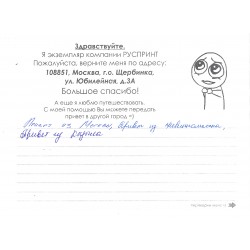 Здравствуйте.
Я экземпляр компании РУСПРИНТ
Пожалуйста, верните меня по адресу:
108851, Москва, г.о. Щербинка,
ул. Юбилейная, д.3А
Большое спасибо!
А еще я люблю путешествовать.
С моей помощью Вы можете передать
привет в другой город =)
из Москвы, Привет из
Привет из